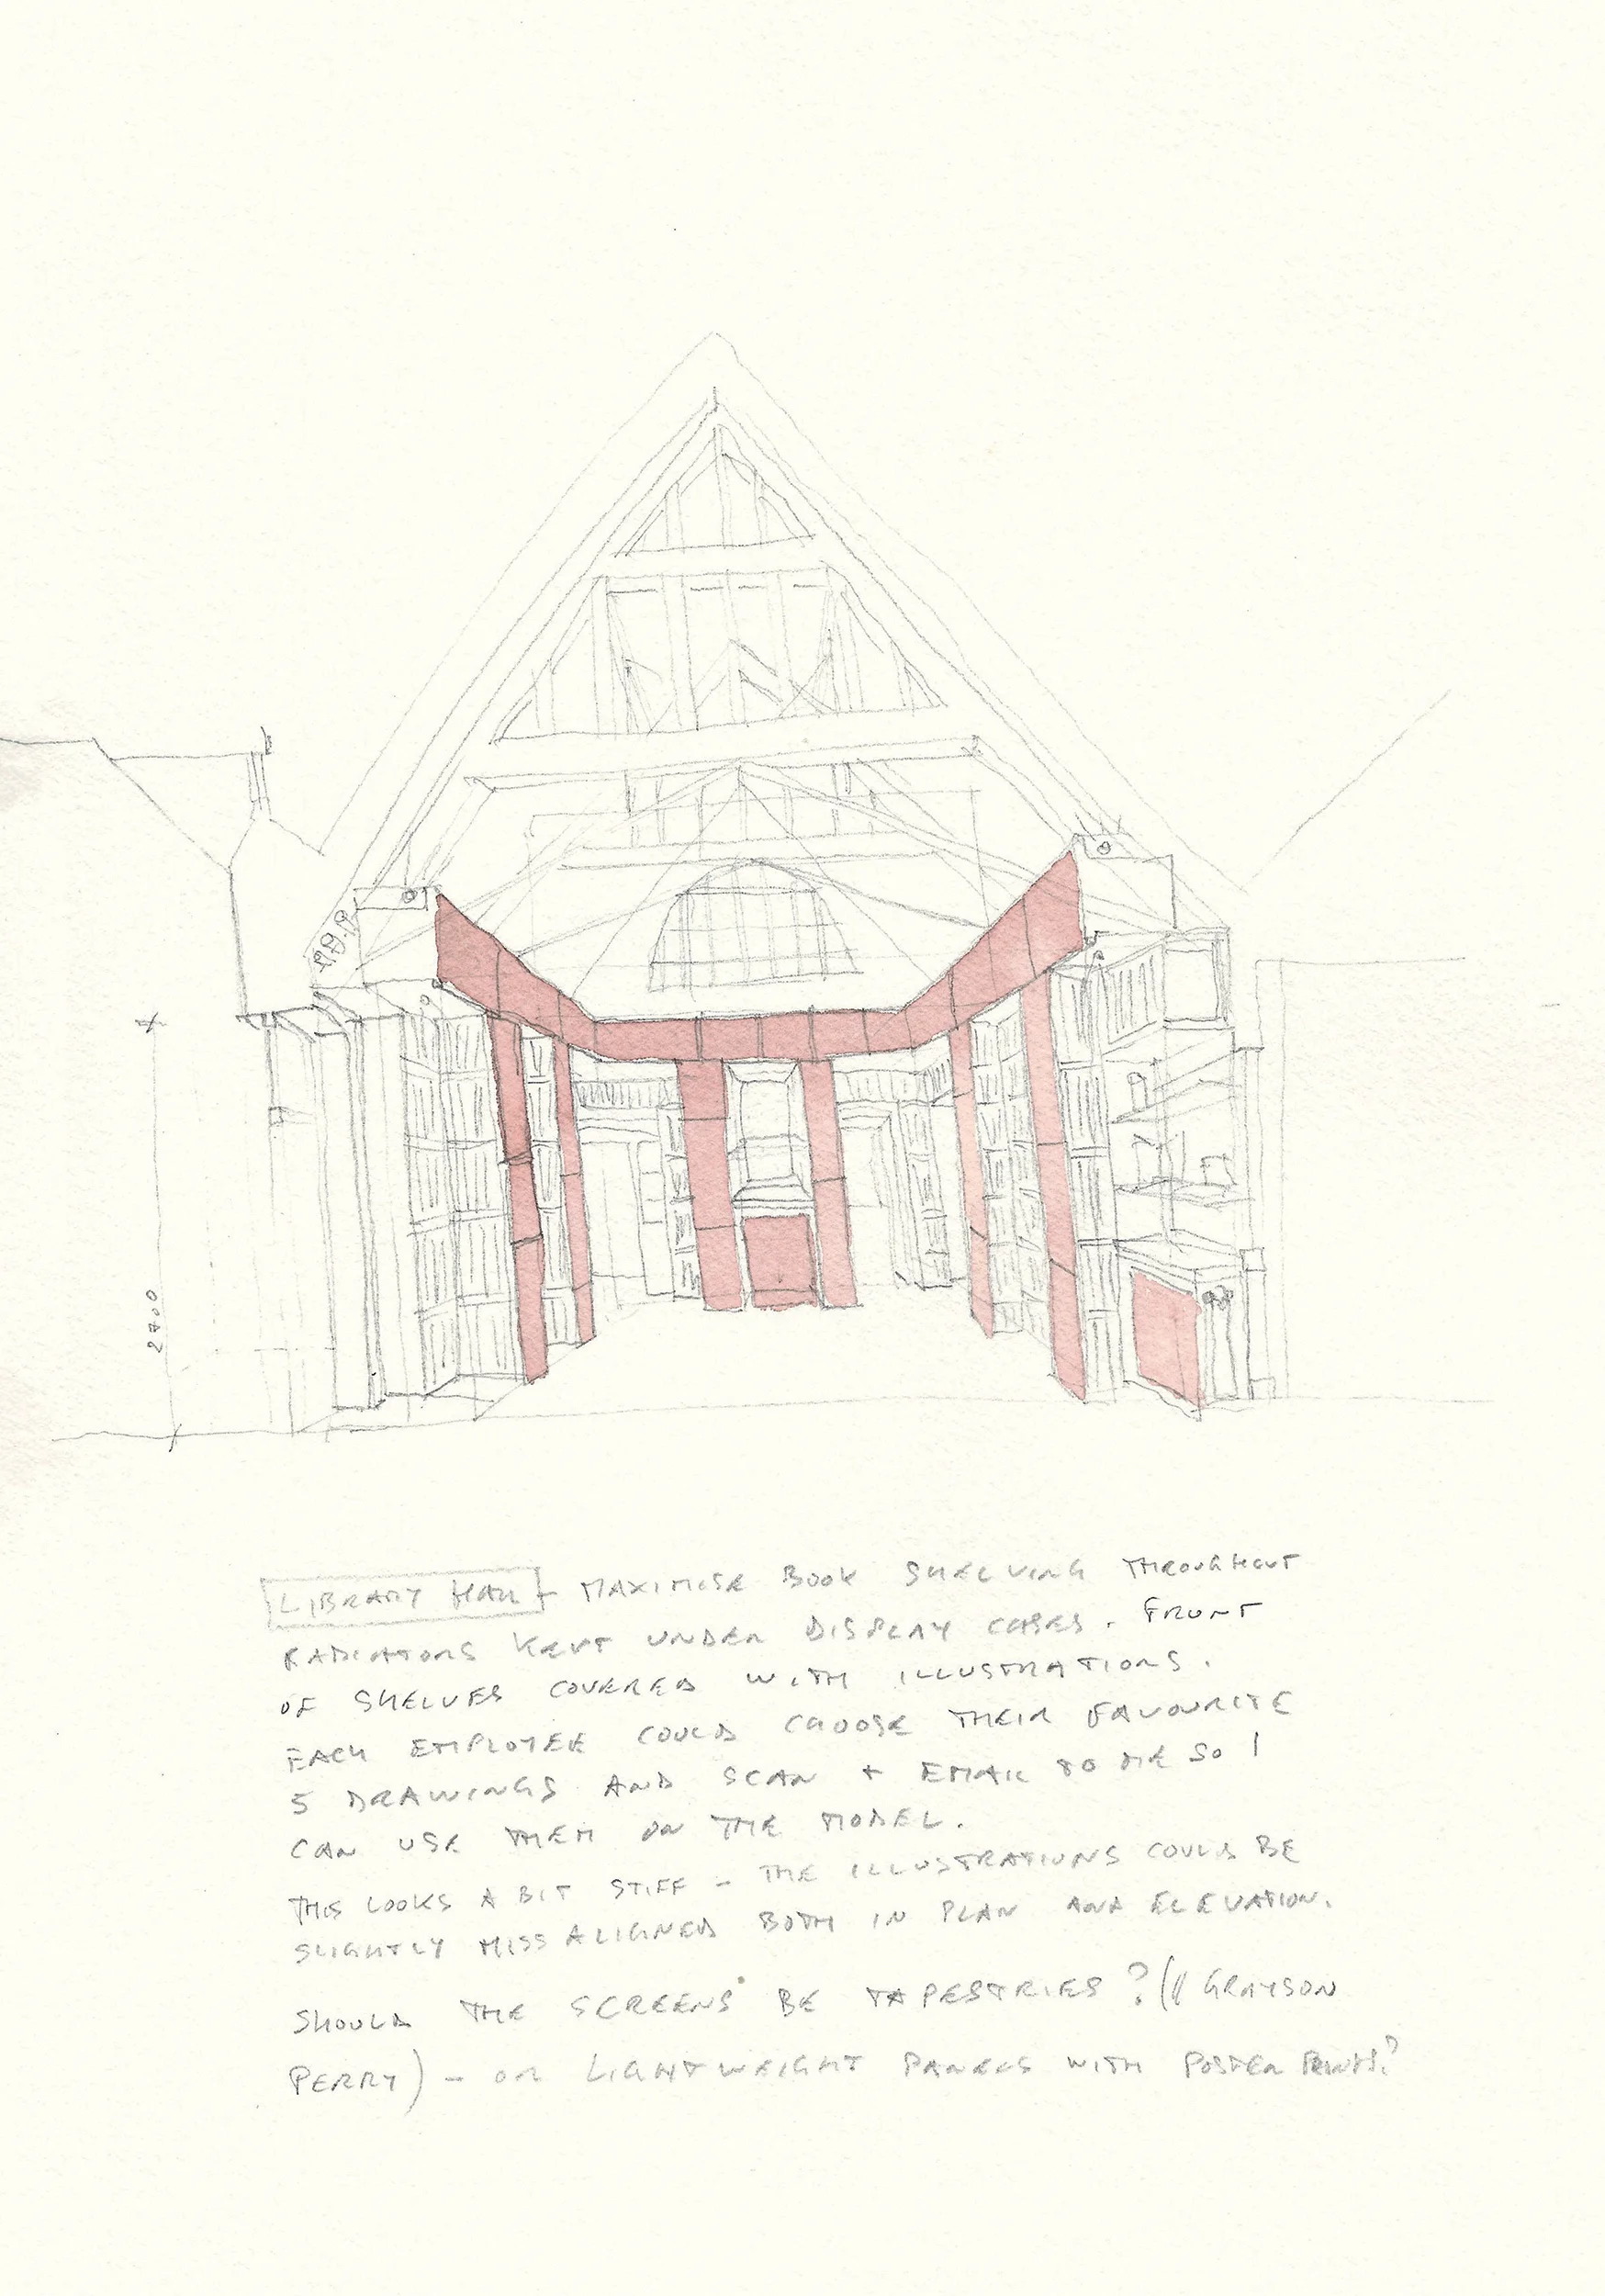 2700
LIBRARY HALL - MAXIMISE BOOK SHELVING THROUGHOUT
RADIATORS KEPT UNDER DISPLAY CASES. FRONT
OF SHELVES COVERED WITH ILLUSTRATIONS.
EACH EMPLOYEE COULD CHOOSE THEIR FAVOURITE
5 DRAWINGS AND SCAN + EMAIL TO ME SO I
CAN USE THEM ON THE MODEL.
THIS LOOKS A BIT STIFF - THE ILLUSTRATIONS COULD BE
SLIGHTLY MISSALIGNED BOTH IN PLAN AND ELEVATION.
SHOULD THE SCREENS BE TAPESTRIES? (// GRAYSON
PERRY) - OR LIGHTWEIGHT PANELS WITH POSTER PRINTS?